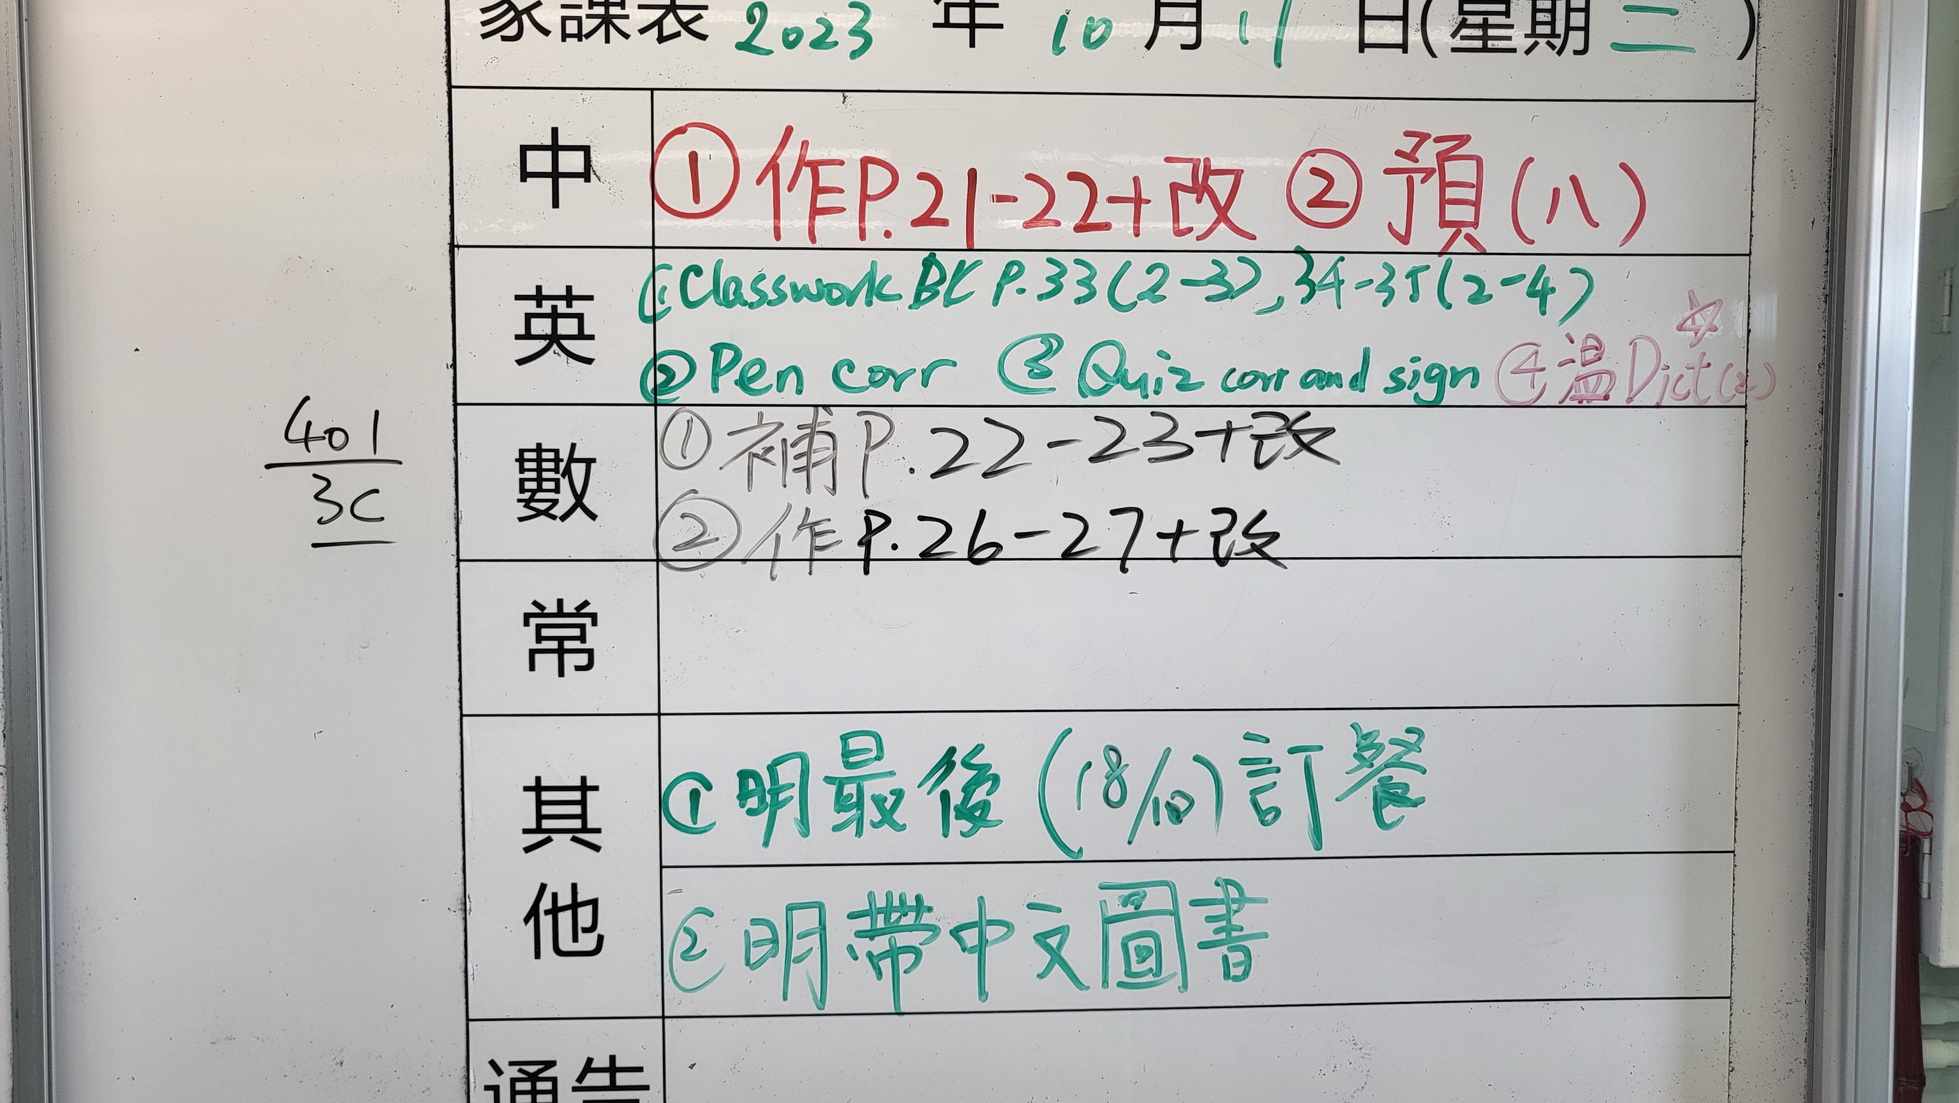 家課表 2023 年 10 月 17 日(星期二)
中 ①作P.21-22+改 ②預(八)
英 ①Classwork BK P.33(2-3), 34-35(2-4)
②Pen corr ③Quiz corr and sign ④溫Dict(2)
401
3C
數 ①補P.22-23+改
②作P.26-27+改
常
其他 ①明最後(18/10)訂餐
②明帶中文圖書
通告